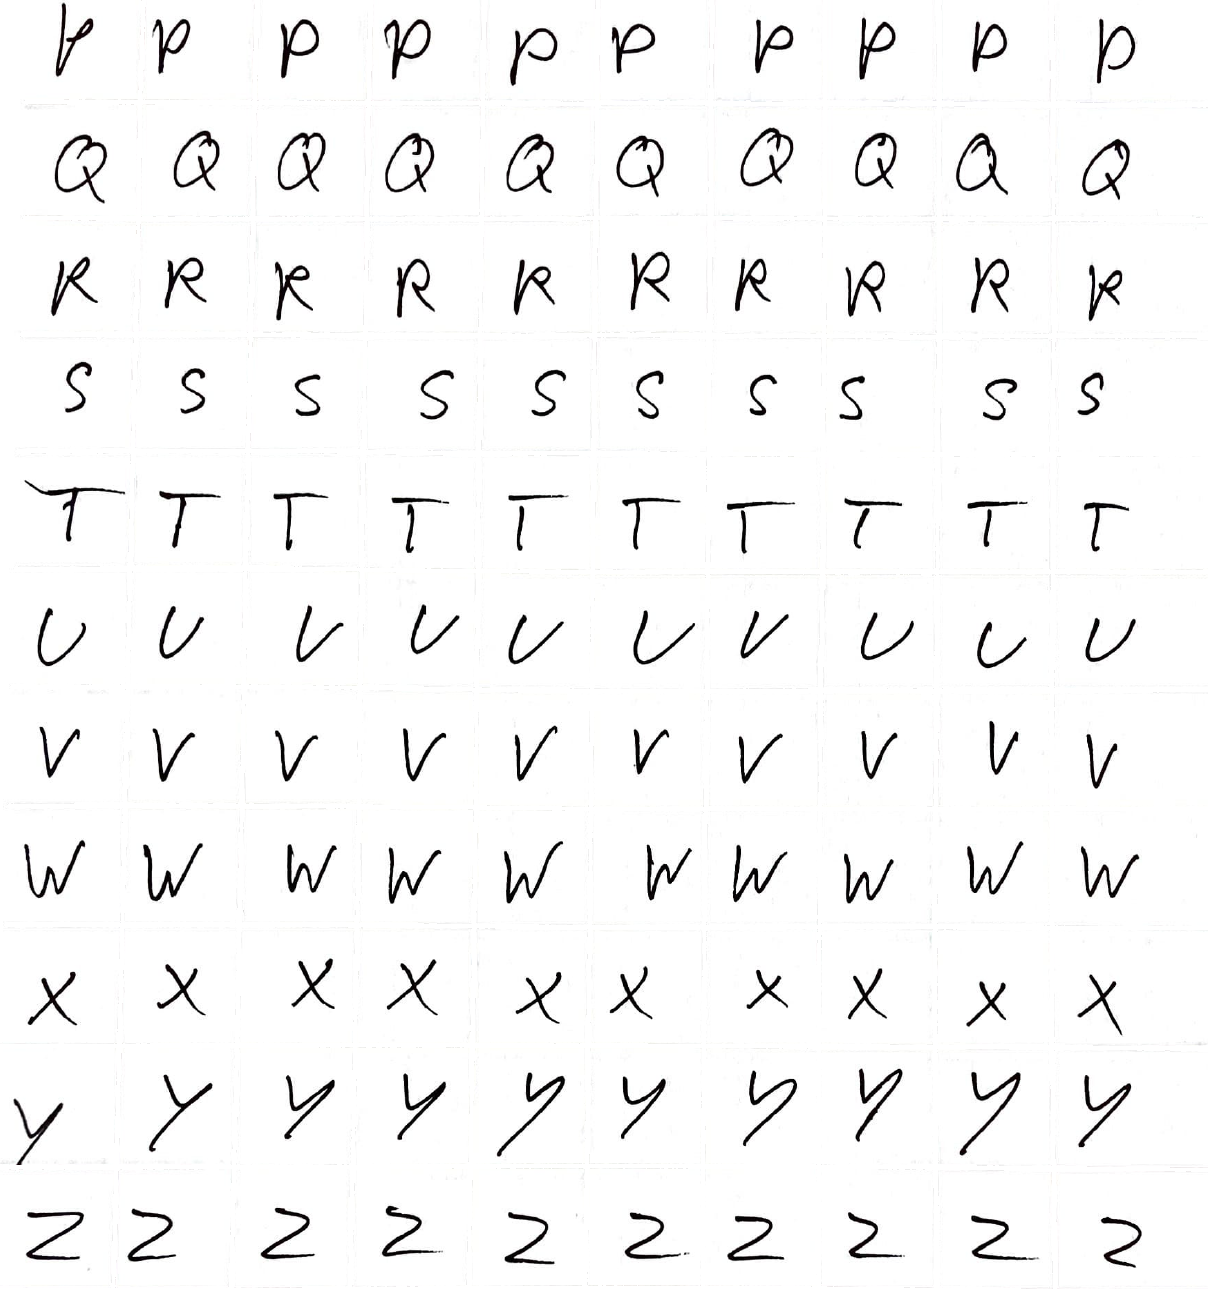 P P P P P P P P P P
Q Q Q Q Q Q Q Q Q Q
R R R R R R R R R R
S S S S S S S S S S
T T T T T T T T T T
U U U U U U U U U U
V V V V V V V V V V
W W W W W W W W W W
X X X X X X X X X X
Y Y Y Y Y Y Y Y Y Y
Z Z Z Z Z Z Z Z Z Z